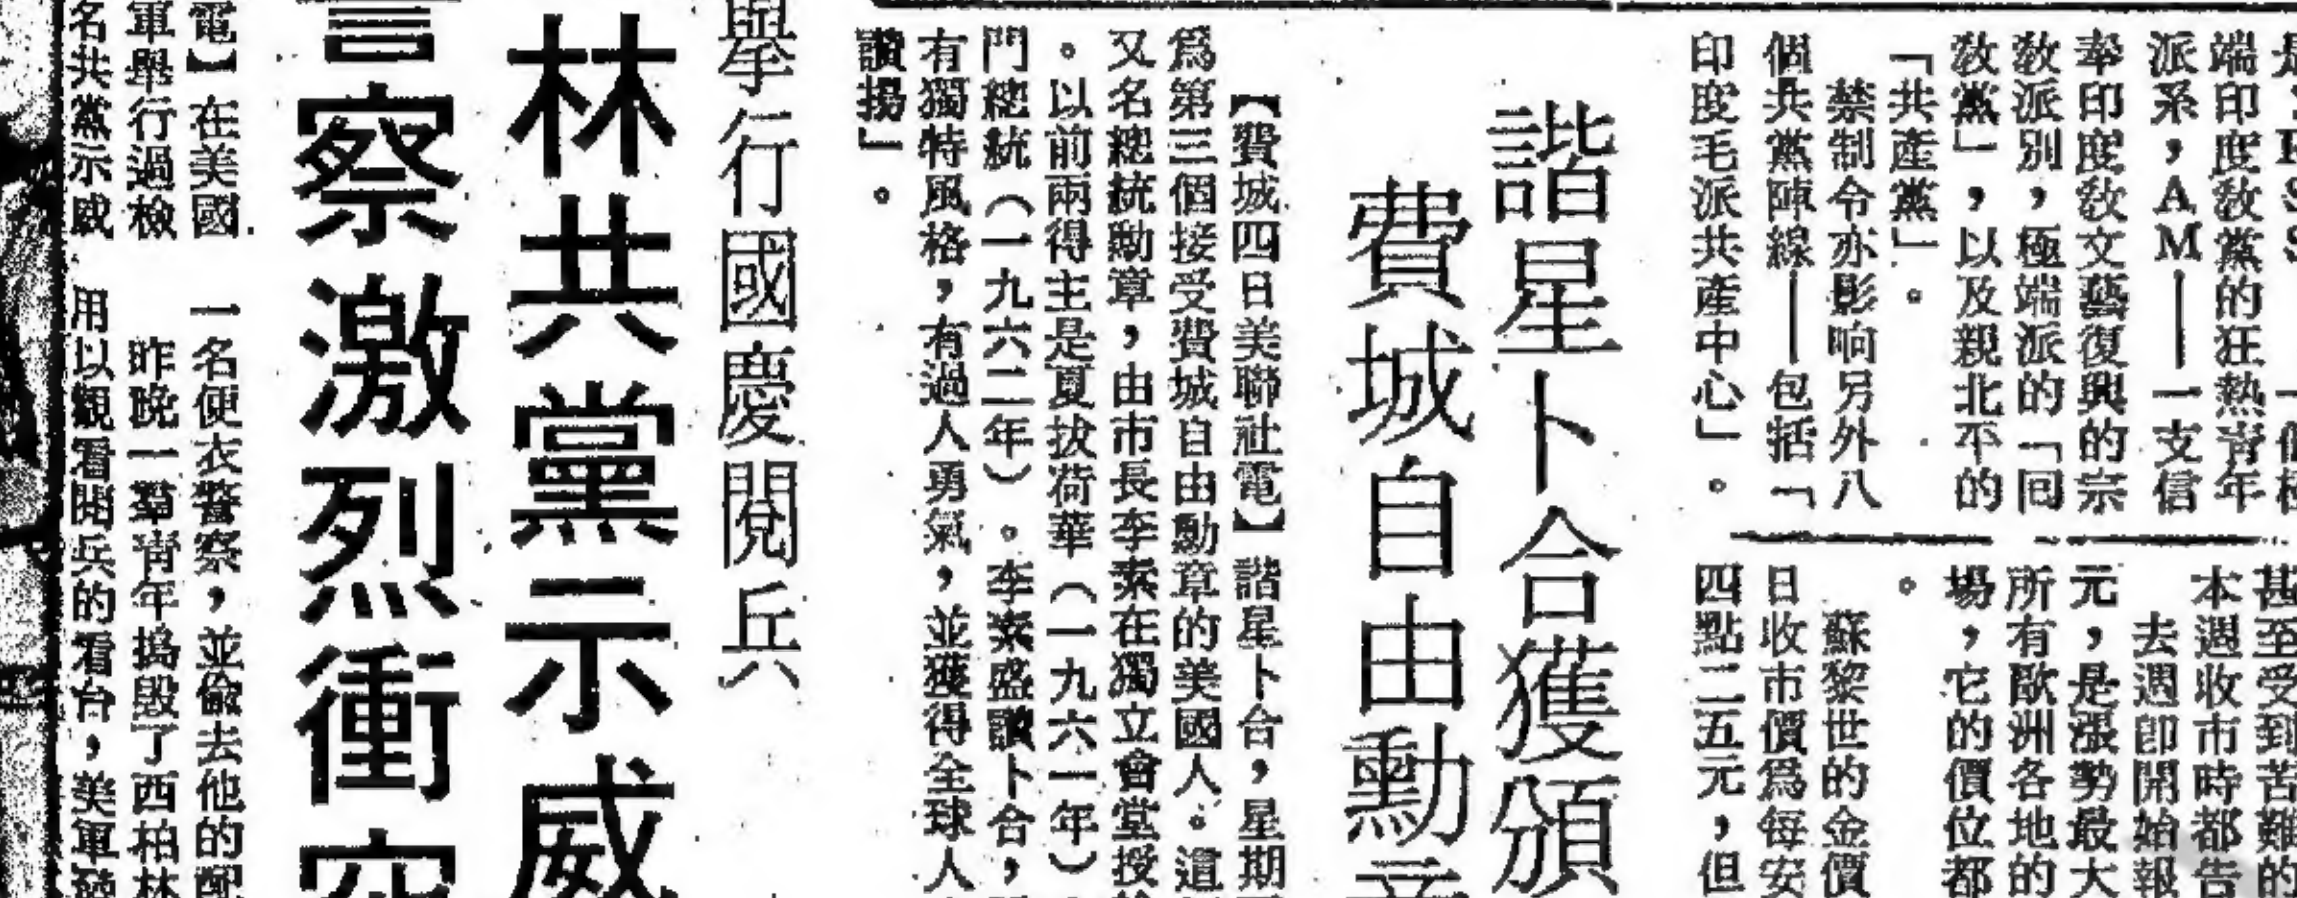 端印度教黨的狂熱青年
派系，AM——一支信
奉印度教文藝復興的宗
教派別，極端派的「同
教黨」，以及親北平的
「共產黨」。
禁制令亦影响另外八
個共黨陣線——包括「
印度毛派共產中心」。
甚至受到苦難的
本週收市時都告
去週即開始報
元，是漲勢最大
所有歐洲各地的
場，它的價位都
。
蘇黎世的金價
日收市價爲每安
四點二五元，但
諧星卜合獲頒
費城自由勳
【費城四日美聯社電】諧星卜合，星期
爲第三個接受費城自由勳章的美國人。這
又名總統勳章，由市長李素在獨立會堂授
。以前兩得主是夏拔荷華（一九六一年）
門總統（一九六二年）。李素盛讚卜合，
有獨特風格，有過人勇氣，並獲得全球人
讚揚」。
舉行國慶閱兵
林共黨示威
警察激烈衝突
電】在美國
軍舉行過檢
名共黨示威
一名便衣警察，並偷去他的配
昨晚一羣青年搗毀了西柏林
用以觀看閱兵的看台，美軍